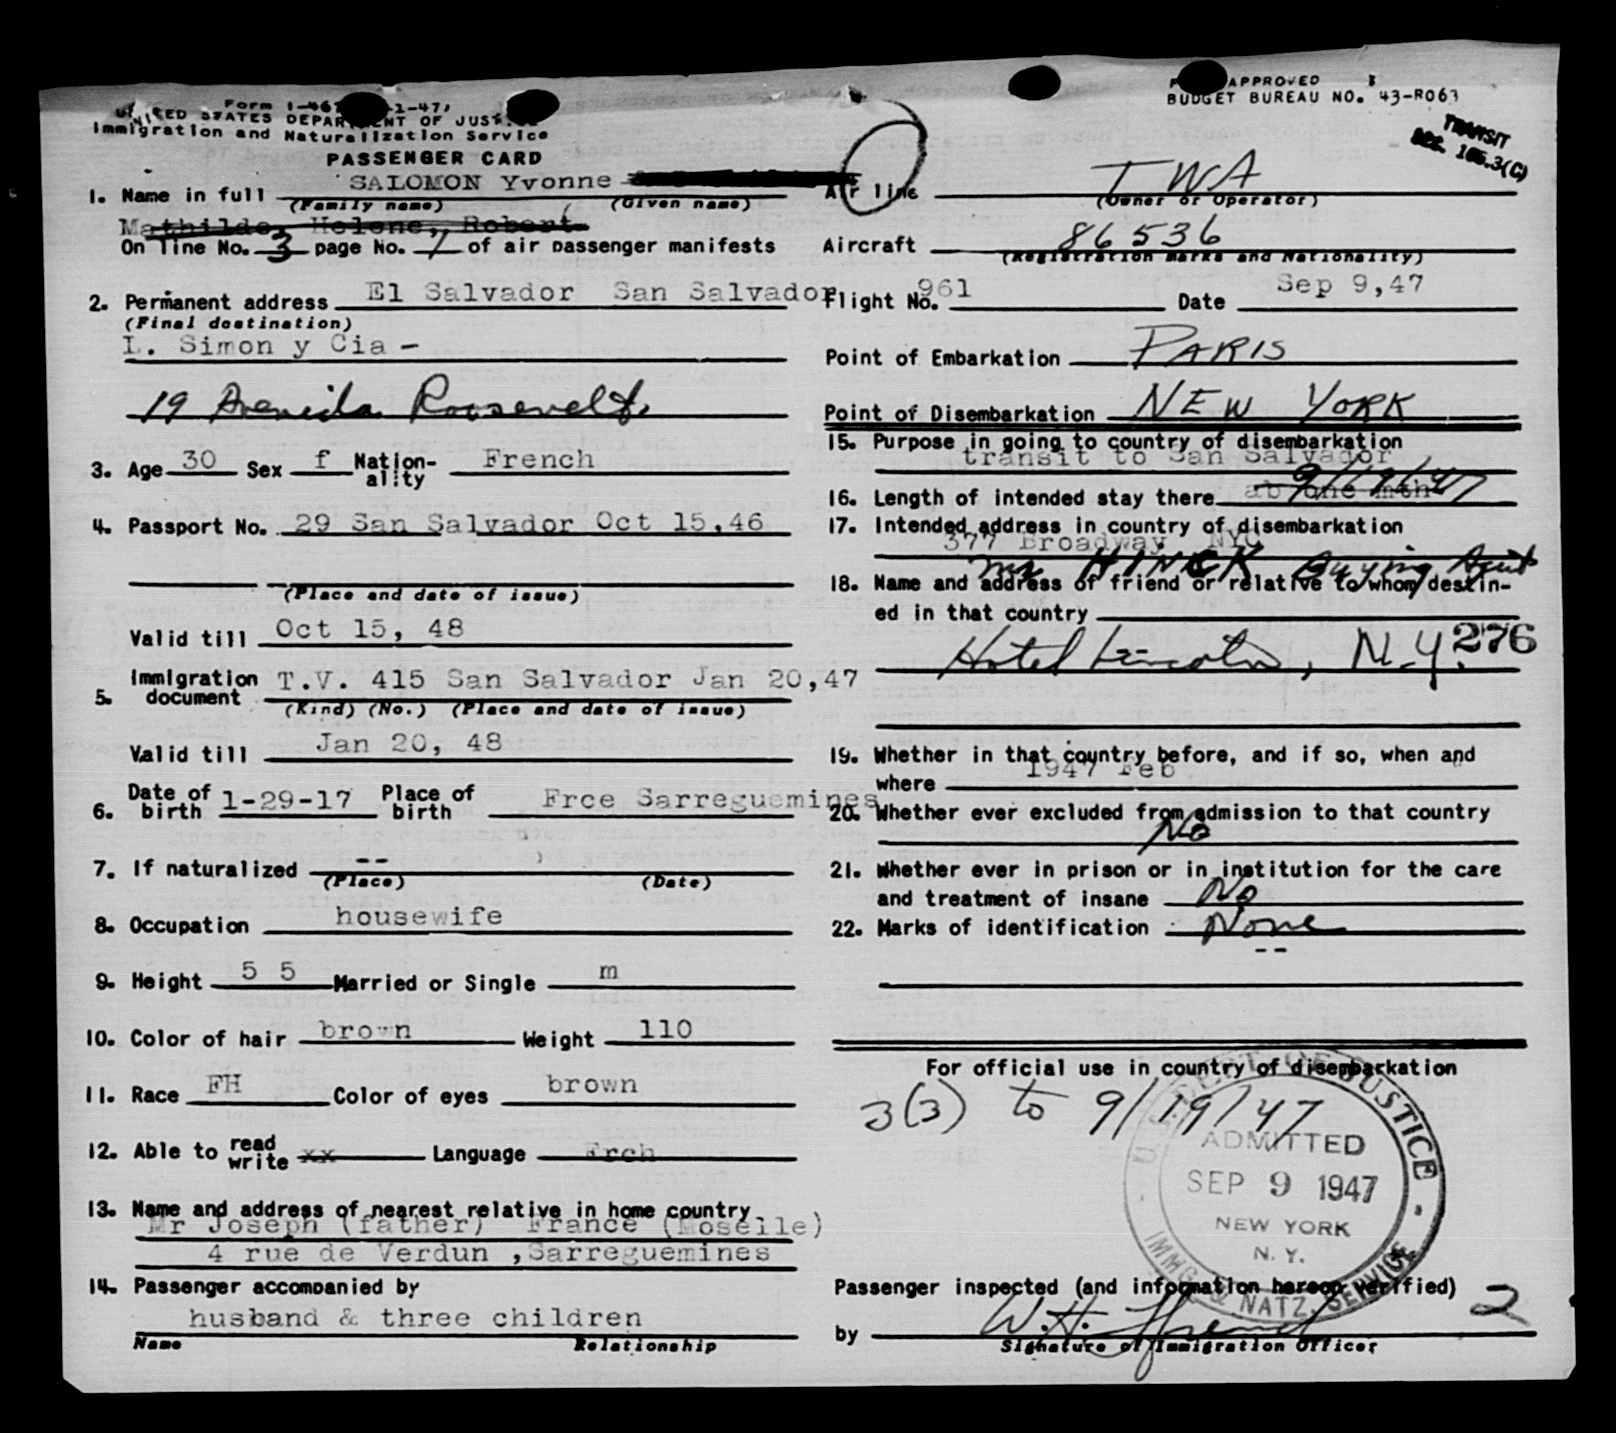 Form I-46 -1-47,
UNITED STATES DEPARTMENT OF JUSTICE
Immigration and Naturalization Service
PASSENGER CARD
1. Name in full SALOMON Yvonne
(Family name) (Given name)
Mathilde, Helene, Robert
On line No. 3 page No. 1 of air passenger manifests
2. Permanent address El Salvador San Salvador
(Final destination)
L. Simon y Cia -
19 Avenida Roosevelt
3. Age 30 Sex f Nation-ality French
4. Passport No. 29 San Salvador Oct 15,46
(Place and date of issue)
Valid till Oct 15, 48
5. Immigration document T.V. 415 San Salvador Jan 20,47
(Kind) (No.) (Place and date of issue)
Valid till Jan 20, 48
6. Date of birth 1-29-17 Place of birth Frce Sarreguemines
7. If naturalized --
(Place) (Date)
8. Occupation housewife
9. Height 5 5 Married or Single m
10. Color of hair brown Weight 110
11. Race FH Color of eyes brown
12. Able to read write xx Language Frch
13. Name and address of nearest relative in home country
Mr Joseph (father) France (Moselle)
4 rue de Verdun ,Sarreguemines
14. Passenger accompanied by
husband & three children
Name Relationship
APPROVED
BUDGET BUREAU NO. 43-R063
TRANSIT
SEC. 105.3(C)
Air line TWA
(Owner or Operator)
Aircraft 86536
(Registration marks and Nationality)
Flight No. 961 Date Sep 9,47
Point of Embarkation PARIS
Point of Disembarkation NEW YORK
15. Purpose in going to country of disembarkation
transit to San Salvador
16. Length of intended stay there ab one mth 9/19/47
17. Intended address in country of disembarkation
377 Broadway NYC
Mr HINCK Buying Agent
18. Name and address of friend or relative to whom destin-
ed in that country
Hotel Lincoln, N.Y. 276
19. Whether in that country before, and if so, when and
where 1947 Feb
20. Whether ever excluded from admission to that country
No
21. Whether ever in prison or in institution for the care
and treatment of insane No
22. Marks of identification None
--
For official use in country of disembarkation
3(3) to 9/19/47
U.S. DEPT. OF JUSTICE
ADMITTED
SEP 9 1947
NEW YORK
N. Y.
IMMG. & NATZ. SERVICE
Passenger inspected (and information hereon verified) 2
by W.H.
Signature of Immigration Officer